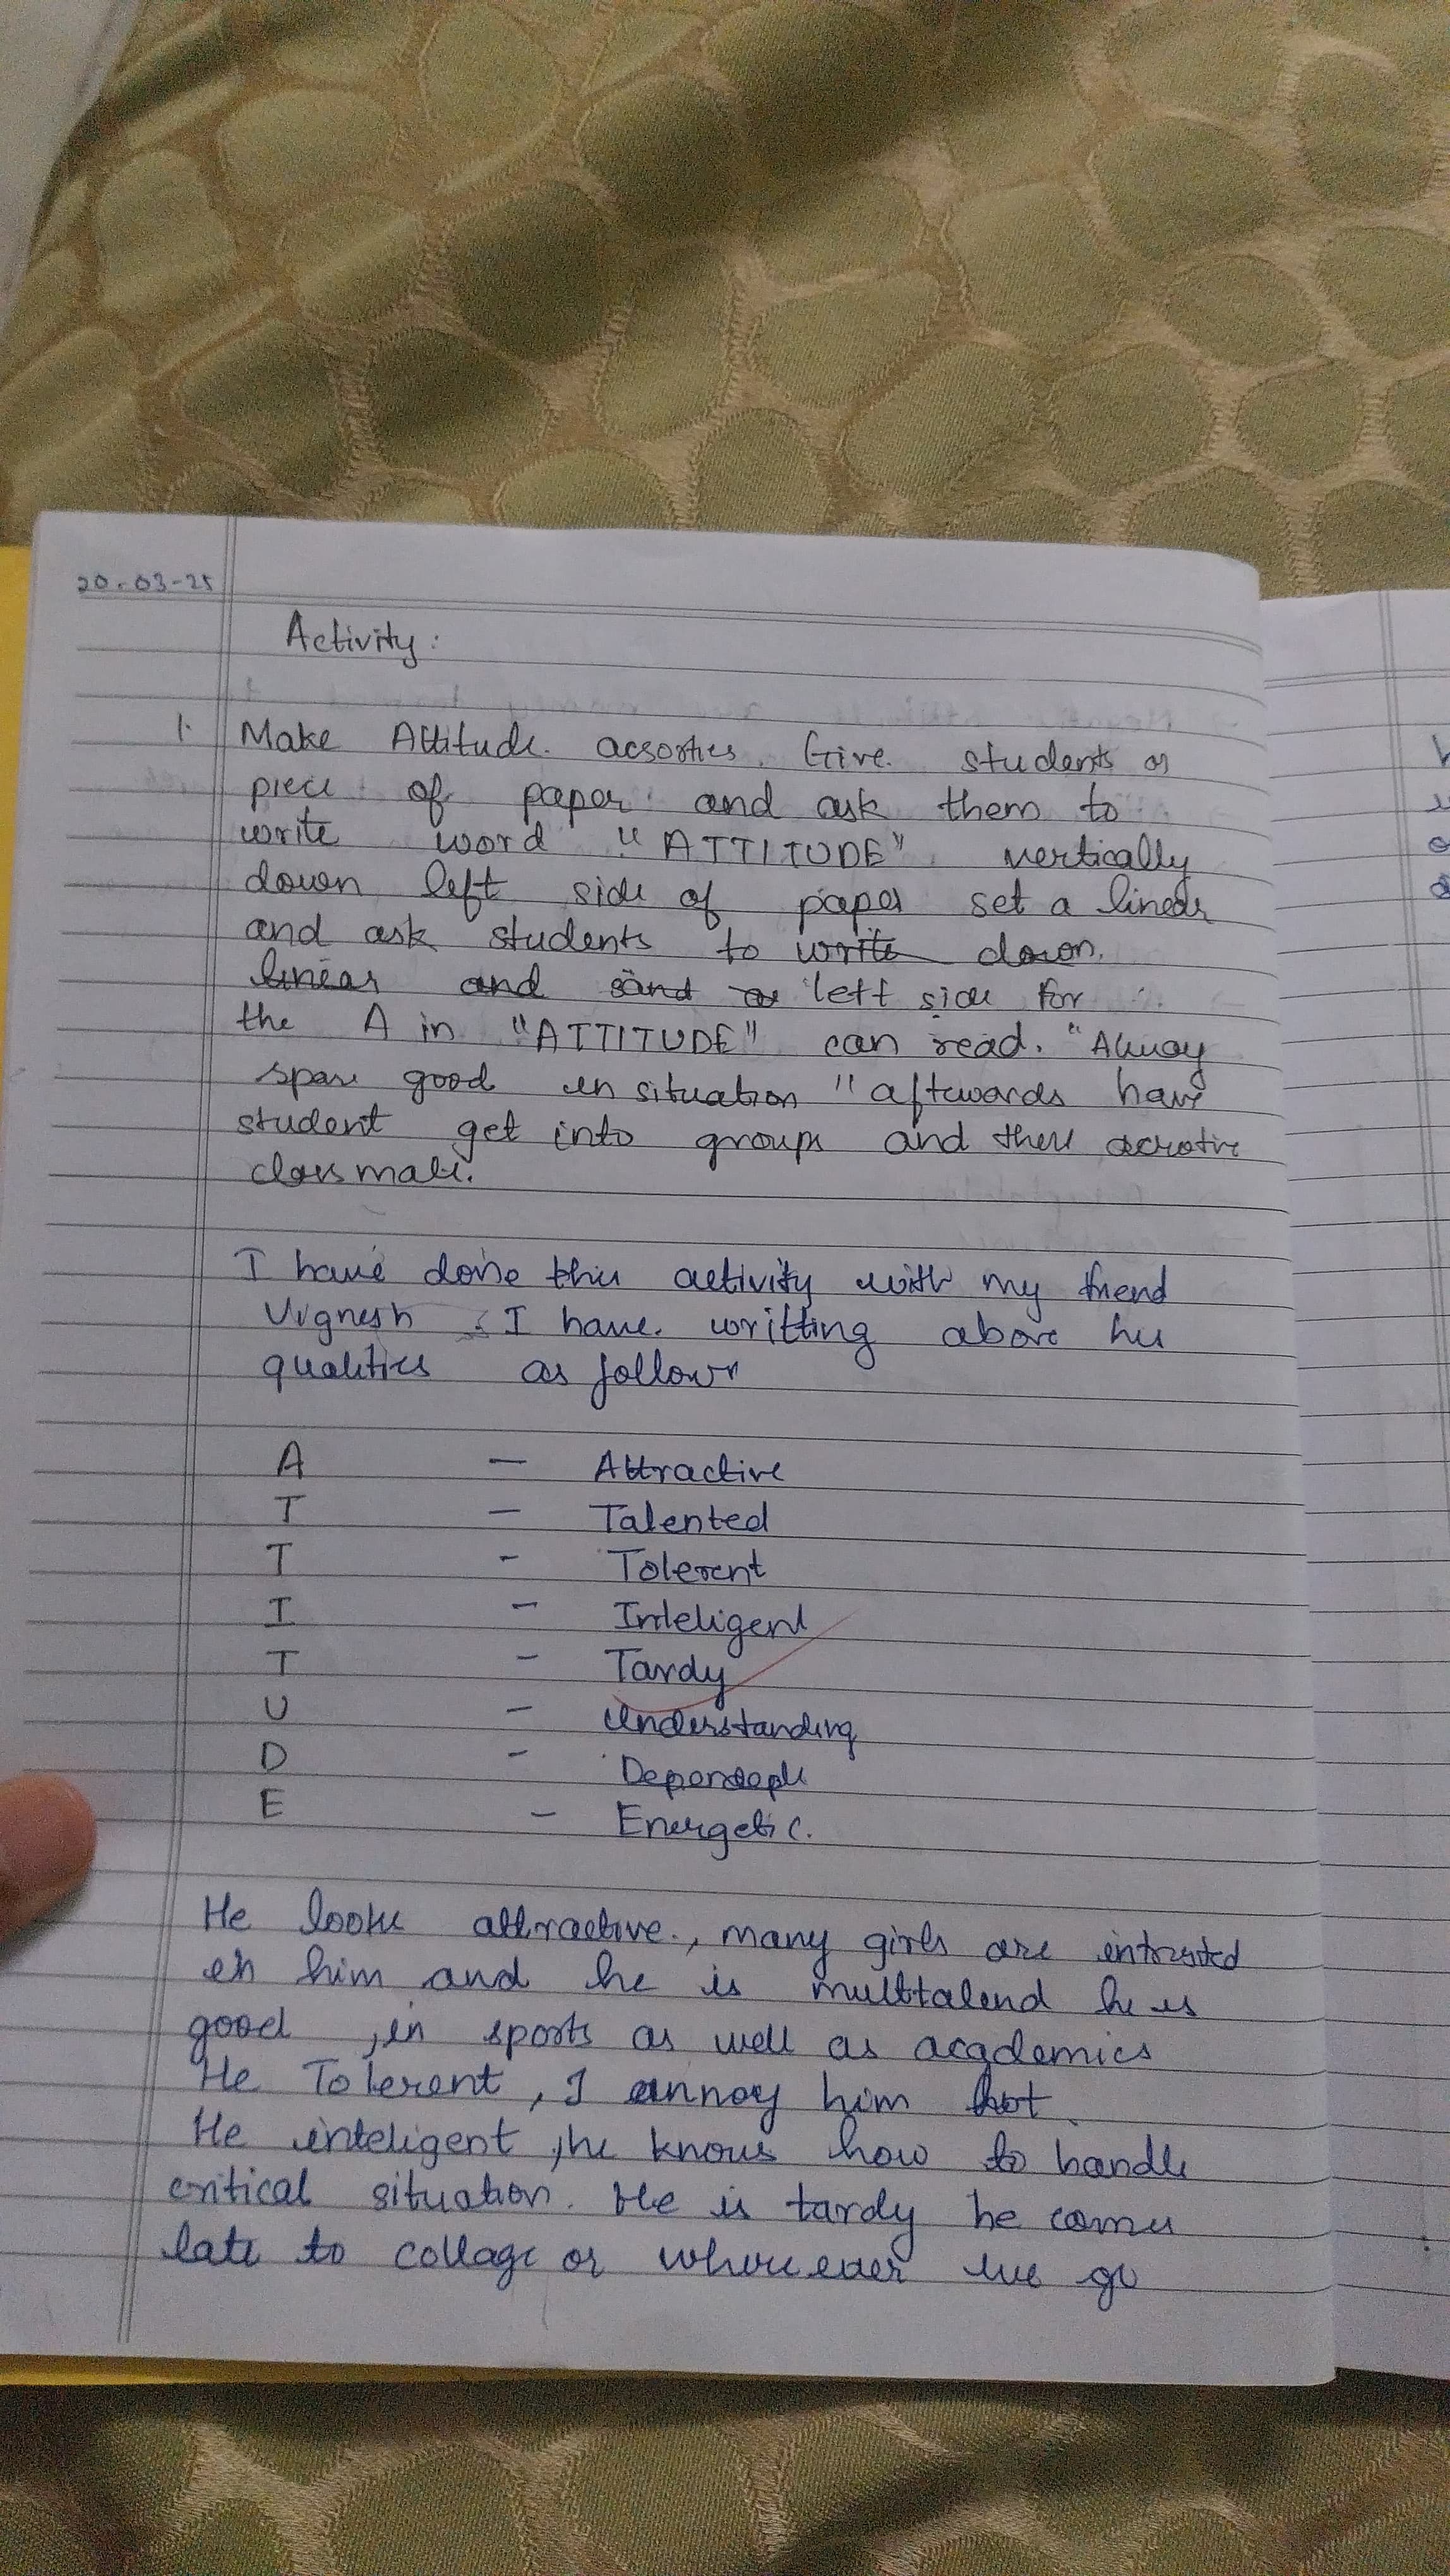 20-03-25
Activity:
1. Make Attitude acsorties. Give students a
piece of paper and ask them to
write word "ATTITUDE" vertically
down left side of paper set a linear
and ask students to write down.
linear and sand left side for
the A in "ATTITUDE" can read. "Alway
span good in situation" aftwards have
student get into groups and their
classmate.
I have done this activity with my friend
Vignesh. I have writting above his
qualities as follows
A - Attractive
T - Talented
T - Tolerent
I - Inteligent
T - Tardy
U - Understanding
D -
E - Energetic.
He looks attractive, many girls are intrusted
in him and he is multtalend he is
good, in sports as well as acadamics
He Tolerent, I annoy him
He inteligent, he knows how to handle
critical situation. He is tardy he comes
late to collage or whereever we go